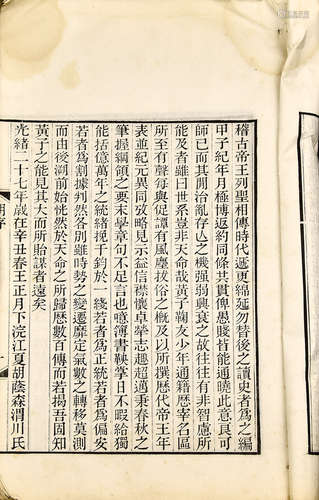 稽古帝王列聖相傳時代遞更綿延勿替後之讀史者爲之編
甲子紀年月極博返約同條共貫俾愚賤皆能通曉此意良可
師已而其間治亂存亾之機强弱興衰之故往往有非智慮所
能及者雖曰世系豈非天命哉黃子鞠友少年通籍歷宰名區
所至有聲每從譚有風塵拔俗之槪及以所撰歷代帝王年
表並紀元異同攷略見示益信襟懷卓犖志趣超邁秉春秋之
筆握綱領之要末學章句不足言也噫簿書鞅掌日不暇給獨
能括億萬年之統緒挽千鈞於一綫若者爲正統若者爲偏安
若者爲割據判然各別雖時勢之變遷靡定氣數之轉移莫測
而由後溯前始恍然於天命之所歸歷數百傳而若揭吾固知
黃子之能見其大而所貽謀者遠矣
光緒二十七年歲在辛丑春王正月下浣江夏胡蔭森渭川氏
胡序
一